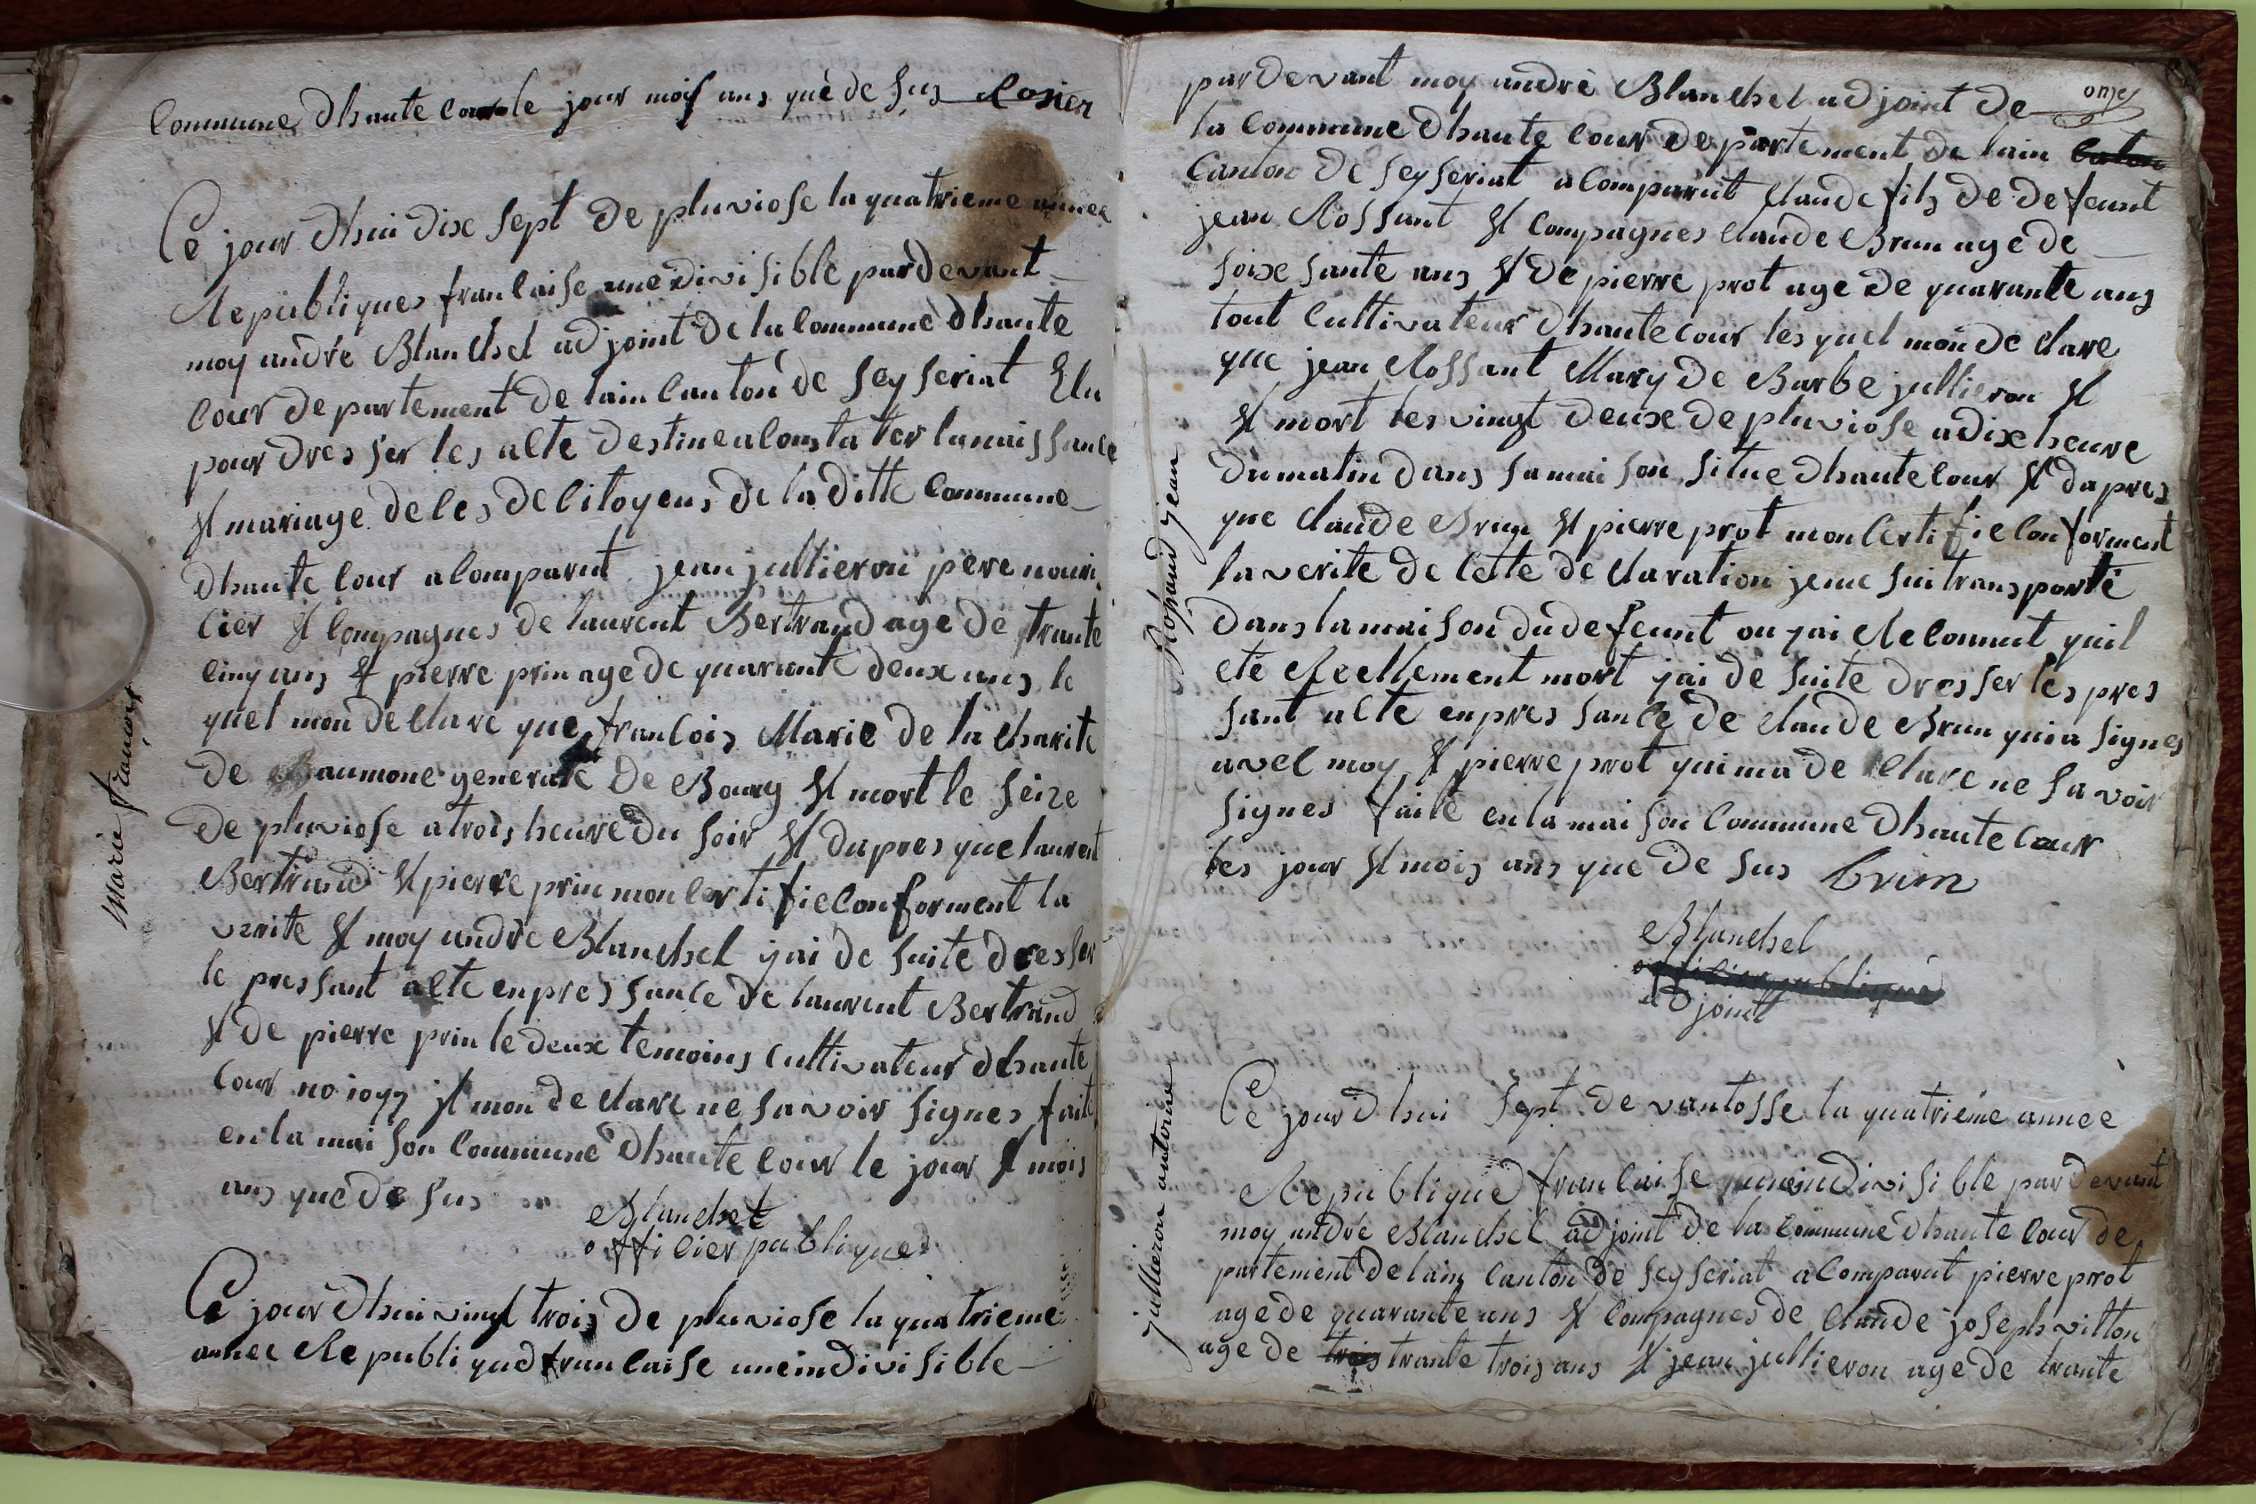 Commune dhaute Cour le jour mois ans que de sus Rosier
Ce jour dhui dix sept de pluviose la quatrieme annee
Republiques francaise une divisible pardevant
moy andre Blanchet adjoint de la Commune dhaute
Cour departement de lain Canton de Seyseriat Elu
pour dresser les acte destine a Constater la naissance
et mariage de ces de Citoyens de la ditte Commune
dhaute Cour a Comparut jean jullieron pere nouri
cier et Compagnes de laurent Bertrand age de trante
cinq ans et pierre prin age de quarante deux ans le
quel mon declare que francois Marie de la charite
de aumone generale de Bourg et mort le seize
de pluviose a trois heure du soir et dapres que laurent
Bertrand et pierre prin mon certifie conforment la
verite et moy andre Blanchet jai de suite dresser
le pressant acte en pressance de laurent Bertrand
et de pierre prin le deux temoins cultivateur dhaute
Cour et mon declare ne savoir signes fait
en la maison Commune dhaute Cour le jour et mois
ans que de sus
Blanchet
officier publique
Marie francois
Ce jour dhui vingt trois de pluviose la quatrieme
annee Republiqud francaise uneindivisible
onze
pardevant moy andre Blanchet adjoint de
la Commune dhaute Cour departement de lain
Canton de Seyseriat a Comparut claude fils de defeunt
jean Rossant et Compagnes claude Brun age de
soixesante ans et de pierre prot age de quarante ans
tout Cultivateur dhaute Cour lesquel mon declare
que jean Rossant Mary de Barbe jullieron et
et mort les vingt deux de pluviose a dix heure
du matin dans sa maison situe dhaute Cour et dapres
que claude Brun et pierre prot mon certifie conforment
la verite de cette declaration jeme sui transporte
dans la maison du defeunt ou jai Reconnut quil
ete efeellement mort jai de suite dresser les pres
sant acte en pressance de claude Brun qui a signes
avec moy et pierre prot qui ma declare ne savoir
signes faite en la maison Commune dhaute Cour
les jour et mois ans que de sus brun
Blanchet
officier publique
adjoint
Rossand jean
Ce jourdhui sept de vantosse la quatrieme annee
Republiqued francaise uneindivisible pardevant
moy andre Blanchet adjoint de la Commune dhaute Cour de
partement de lain Canton de Seyseriat a Comparut pierre prot
age de quarante ans et Compagnes de claude joseph vitton
age de trois trante trois ans et jean jullieron age de trante
jullieron antoine